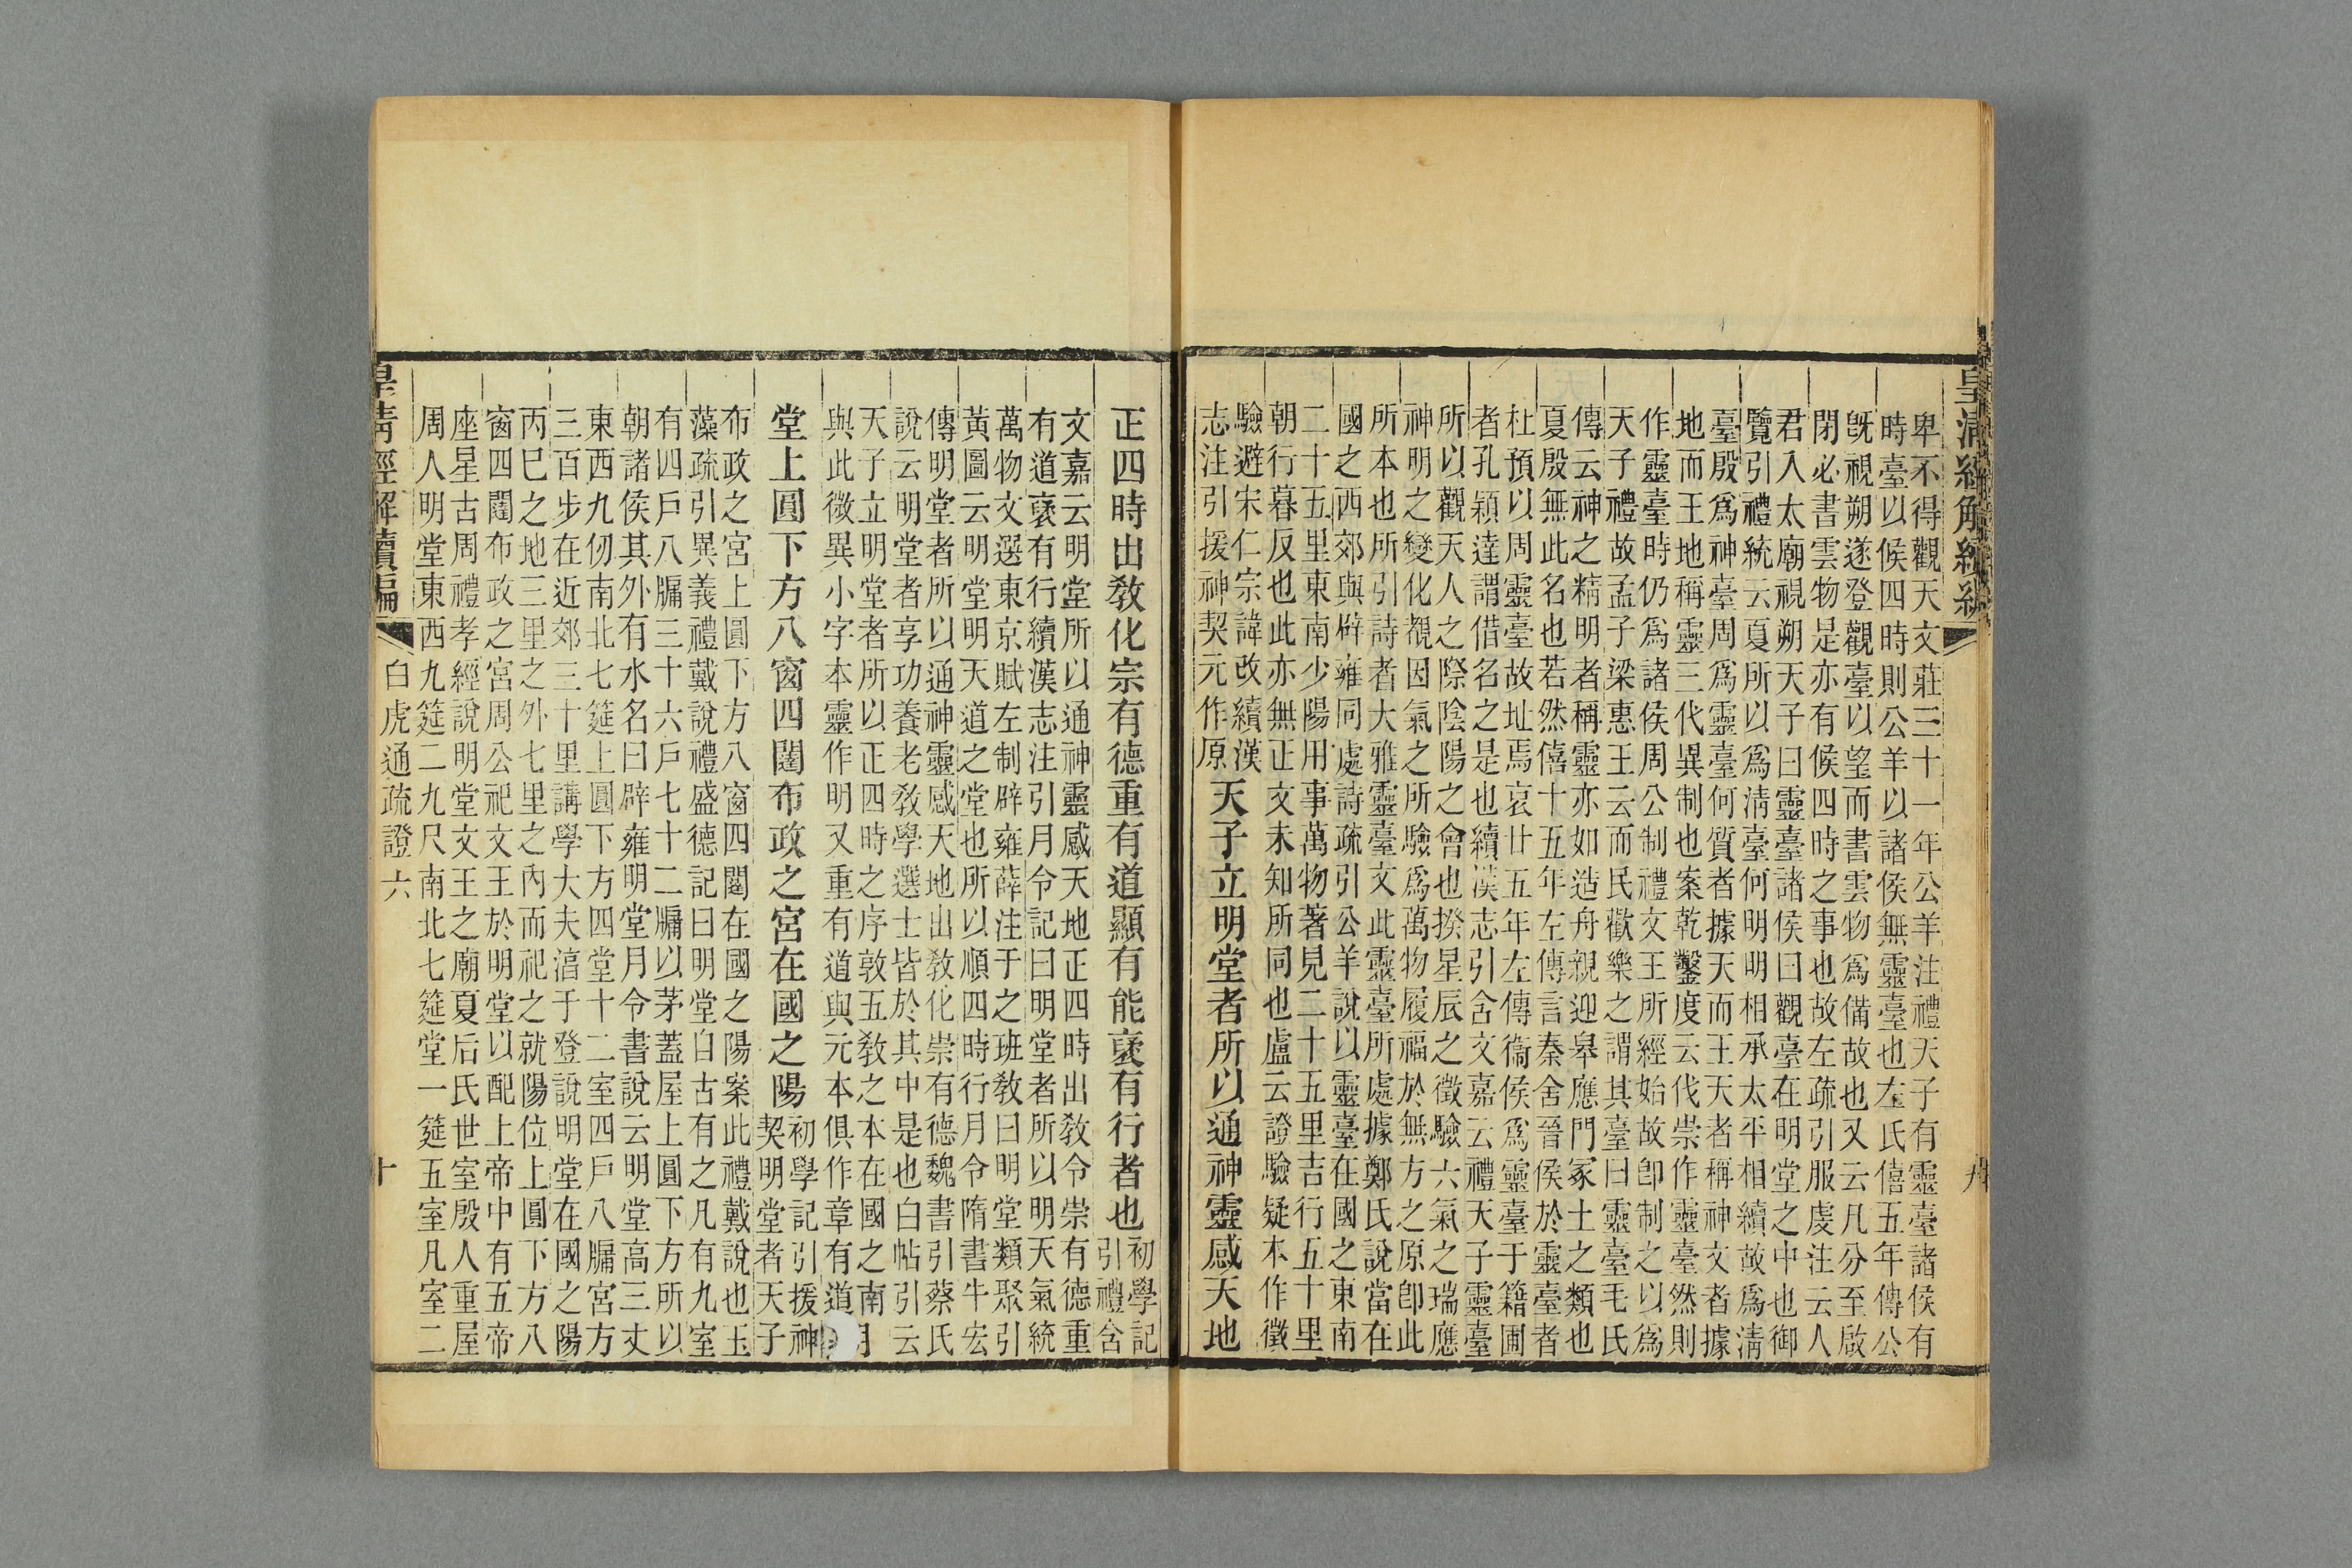 皇清經解續編
九
卑不得觀天文莊三十一年公羊注禮天子有靈臺諸侯有
時臺以候四時則公羊以諸侯無靈臺也左氏僖五年傳公
旣視朔遂登觀臺以望而書雲物爲備故也又云凡分至啟
閉必書雲物是亦有候四時之事也故左疏引服虔注云人
君入太廟視朔天子曰靈臺諸侯曰觀臺在明堂之中也御
覽引禮統云夏所以爲淸臺何明明相承太平相續故爲淸
臺殷爲神臺周爲靈臺何質者據天而王天者稱神文者據
地而王地稱靈三代異制也案乾鑿度云伐崇作靈臺然則
作靈臺時仍爲諸侯周公制禮文王所經始故卽制之以爲
天子禮故孟子梁惠王云而民歡樂之謂其臺曰靈臺毛氏
傳云神之精明者稱靈亦如造舟親迎皋應門冢土之類也
夏殷無此名也若然僖十五年左傳言秦舍晉侯於靈臺者
杜預以周靈臺故址焉哀廿五年左傳衞侯爲靈臺于籍圃
者孔穎達謂借名之是也續漢志引含文嘉云禮天子靈臺
所以觀天人之際陰陽之會也揆星辰之徵驗六氣之瑞應
神明之變化覩因氣之所驗爲萬物履福於無方之原卽此
所本也所引詩者大雅靈臺文此靈臺所處據鄭氏說當在
國之西郊與辟雍同處詩疏引公羊說以靈臺在國之東南
二十五里東南少陽用事萬物著見二十五里吉行五十里
朝行暮反也此亦無正文未知所同也盧云證驗疑本作徵
驗避宋仁宗諱改續漢
志注引援神契元作原
天子立明堂者所以通神靈感天地
正四時出敎化宗有德重有道顯有能褒有行者也
初學記
引禮含
文嘉云明堂所以通神靈感天地正四時出敎令崇有德重
有道褒有行續漢志注引月令記曰明堂者所以明天氣統
萬物文選東京賦左制辟雍薛注于之班敎曰明堂類聚引
黃圖云明堂明天道之堂也所以順四時行月令隋書牛宏
傳明堂者所以通神靈感天地出敎化崇有德魏書引蔡氏
說云明堂者享功養老敎學選士皆於其中是也白帖引云
天子立明堂者所以正四時之序敦五敎之本在國之南
與此微異小字本靈作明又重有道與元本俱作章有道
堂上圓下方八窗四闥布政之宮在國之陽
初學記引援神
契明堂者天子
布政之宮上圓下方八窗四闥在國之陽案此禮戴說也玉
藻疏引異義禮戴說禮盛德記曰明堂自古有之凡有九室
有四戶八牖三十六戶七十二牖以茅蓋屋上圓下方所以
朝諸侯其外有水名曰辟雍明堂月令書說云明堂高三丈
東西九仞南北七筵上圓下方四堂十二室四戶八牖宮方
三百步在近郊三十里講學大夫淯于登說明堂在國之陽
丙巳之地三里之外七里之內而祀之就陽位上圓下方八
窗四闥布政之宮周公祀文王於明堂以配上帝中有五帝
座星古周禮孝經說明堂文王之廟夏后氏世室殷人重屋
周人明堂東西九筵二九尺南北七筵堂一筵五室凡室二
皇淸經解續編
白虎通疏證六
十